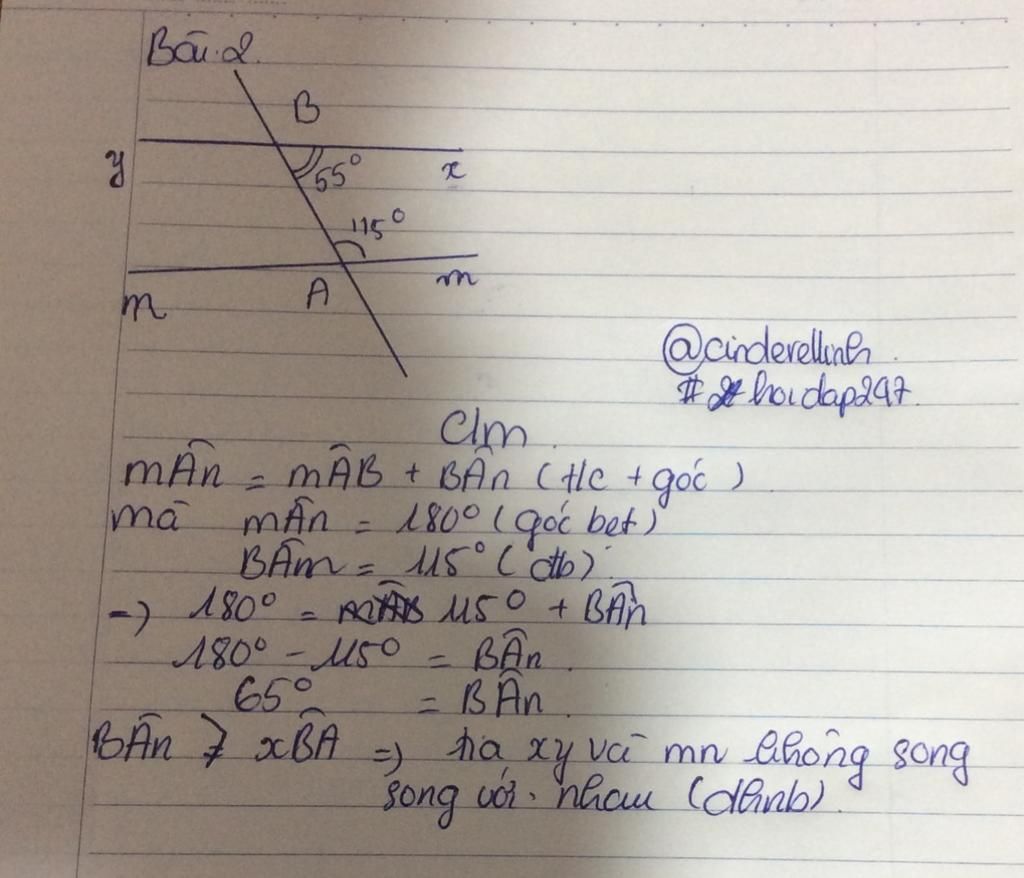 Bài 2.
B
y
55°
x
115°
m
A
m
@cinderellinh.
#hoidap247.
Clm.
mÂn = mÂB + BÂn (t/c + góc)
mà mÂn = 180° (góc bẹt)
BÂm = 115° (đb)
=) 180° = 115° + BÂn
180° - 115° = BÂn.
65° = BÂn.
BÂn > xBA =) tia xy và mn không song
song với nhau (dhnb).